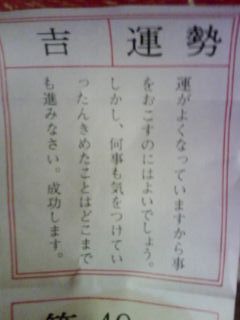 運勢
吉
運がよくなっていますから事
をおこすのにはよいでしょう。
しかし、何事も気をつけてい
ったんきめたことはどこまで
も進みなさい。成功します。